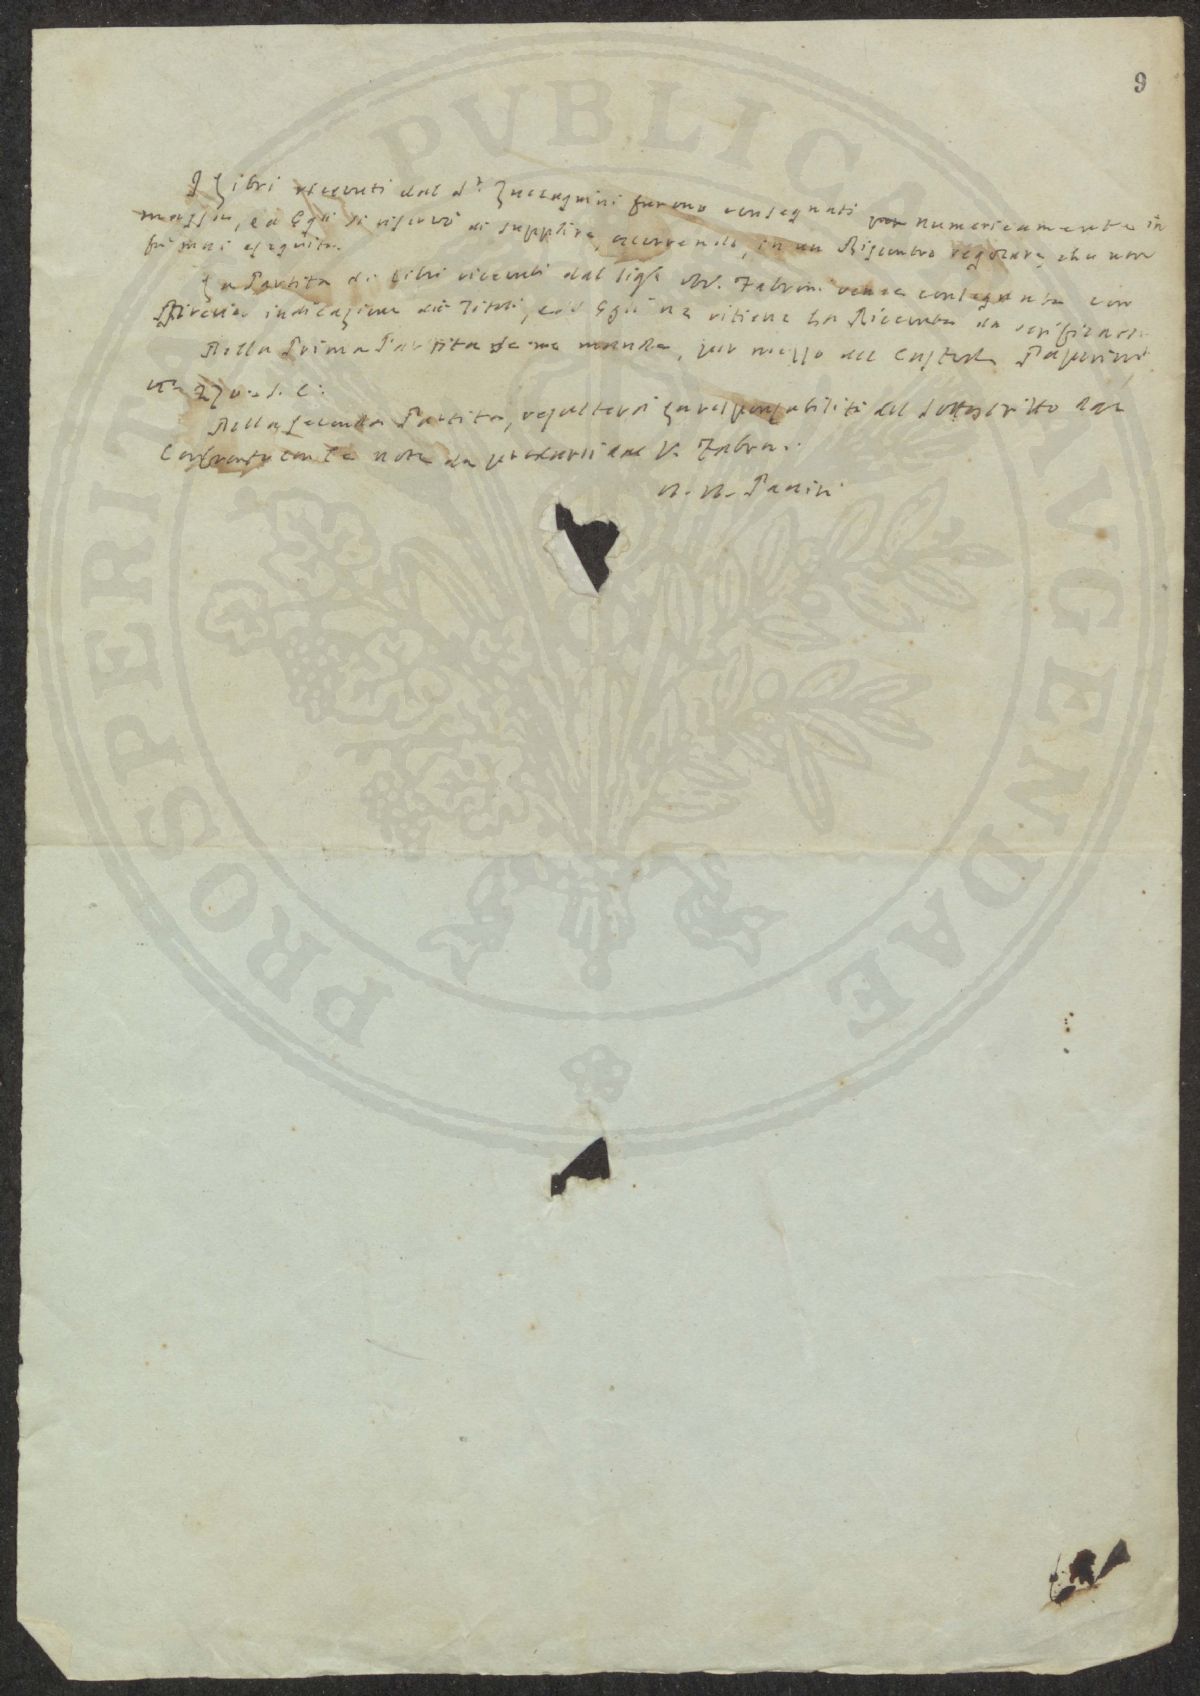 9
I Libri ricevuti dal D.r Zuccagnini furono consegnati numericamente in
massa, ed Egli si riservò di supplire, occorrendo, in un Riscontro regolare, che non
fù mai eseguito.
La Partita di Libri ricevuti dal Sig.r Fabroni venne consegnata con
indicazione dei Titoli, ed Egli ne ritiene la Ricevuta da verificarsi.
Della Prima Partita se ne manda, per mezzo del Custode
270
Della seconda Partita, la responsabilità del Sottoscritto dal
Confronto con le note da prodursi dal Fabroni.
PROSPERITATI PVBLICAE AVGENDAE